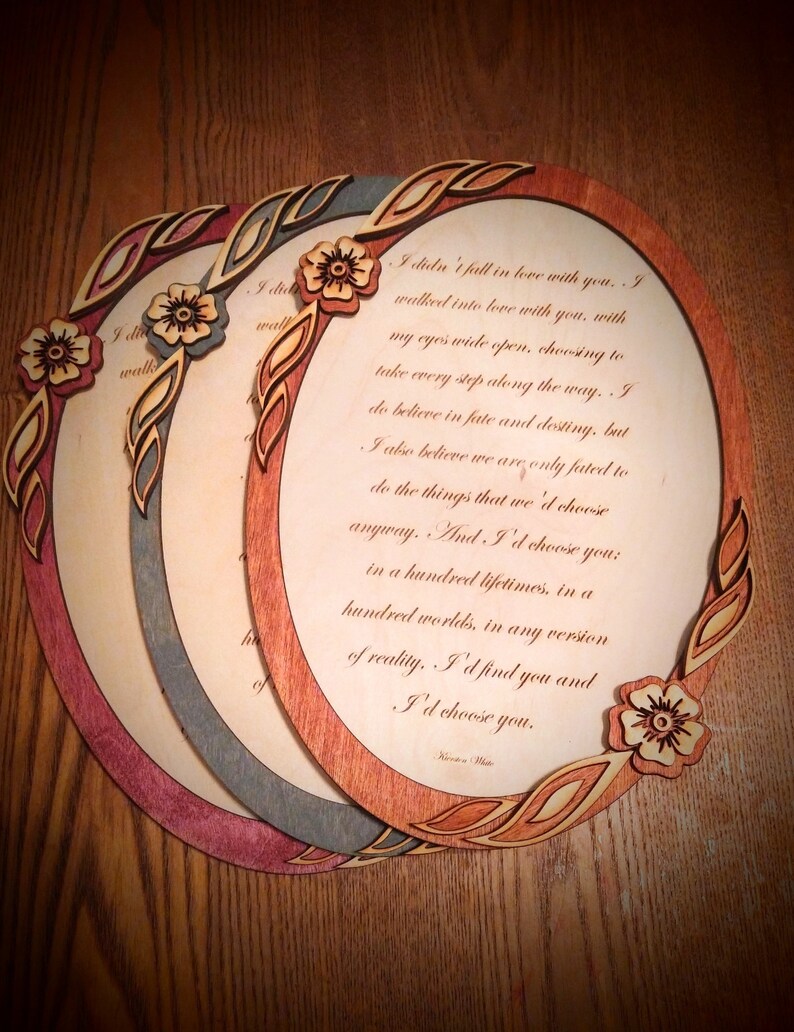 I didn't fall in love with you. I
walked into love with you, with
my eyes wide open, choosing to
take every step along the way. I
do believe in fate and destiny, but
I also believe we are only fated to
do the things that we'd choose
anyway. And I'd choose you;
in a hundred lifetimes, in a
hundred worlds, in any version
of reality, I'd find you and
I'd choose you.
Kiersten White
I didn
wal
I di
walk